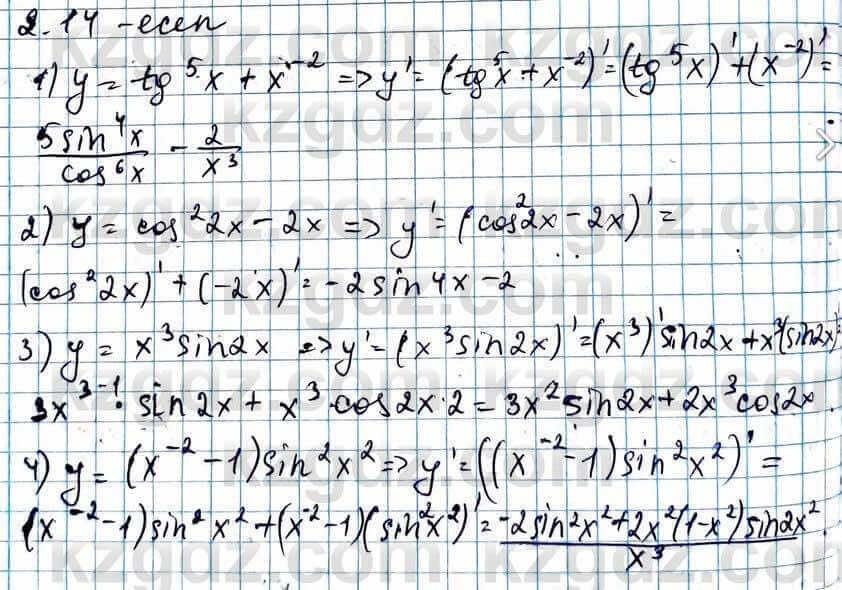 2.14 - есеп
1) y = tg⁵x + x⁻² => y' = (tg⁵x + x⁻²)' = (tg⁵x)' + (x⁻²)' =
5sin⁴x/cos⁶x - 2/x³
2) y = cos²2x - 2x => y' = (cos²2x - 2x)' =
(cos²2x)' + (-2x)' = -2sin4x - 2
3) y = x³sin2x => y' = (x³sin2x)' = (x³)'sin2x + x³(sin2x)'
3x³⁻¹· sin2x + x³·cos2x·2 = 3x²sin2x + 2x³cos2x.
4) y = (x⁻² - 1)sin²x² => y' = ((x⁻² - 1)sin²x²)' =
(x⁻² - 1)sin²x² + (x⁻² - 1)(sin²x²)' = -2sin²x² + 2x²(1-x²)sin2x²/x³.
kzgdz.com